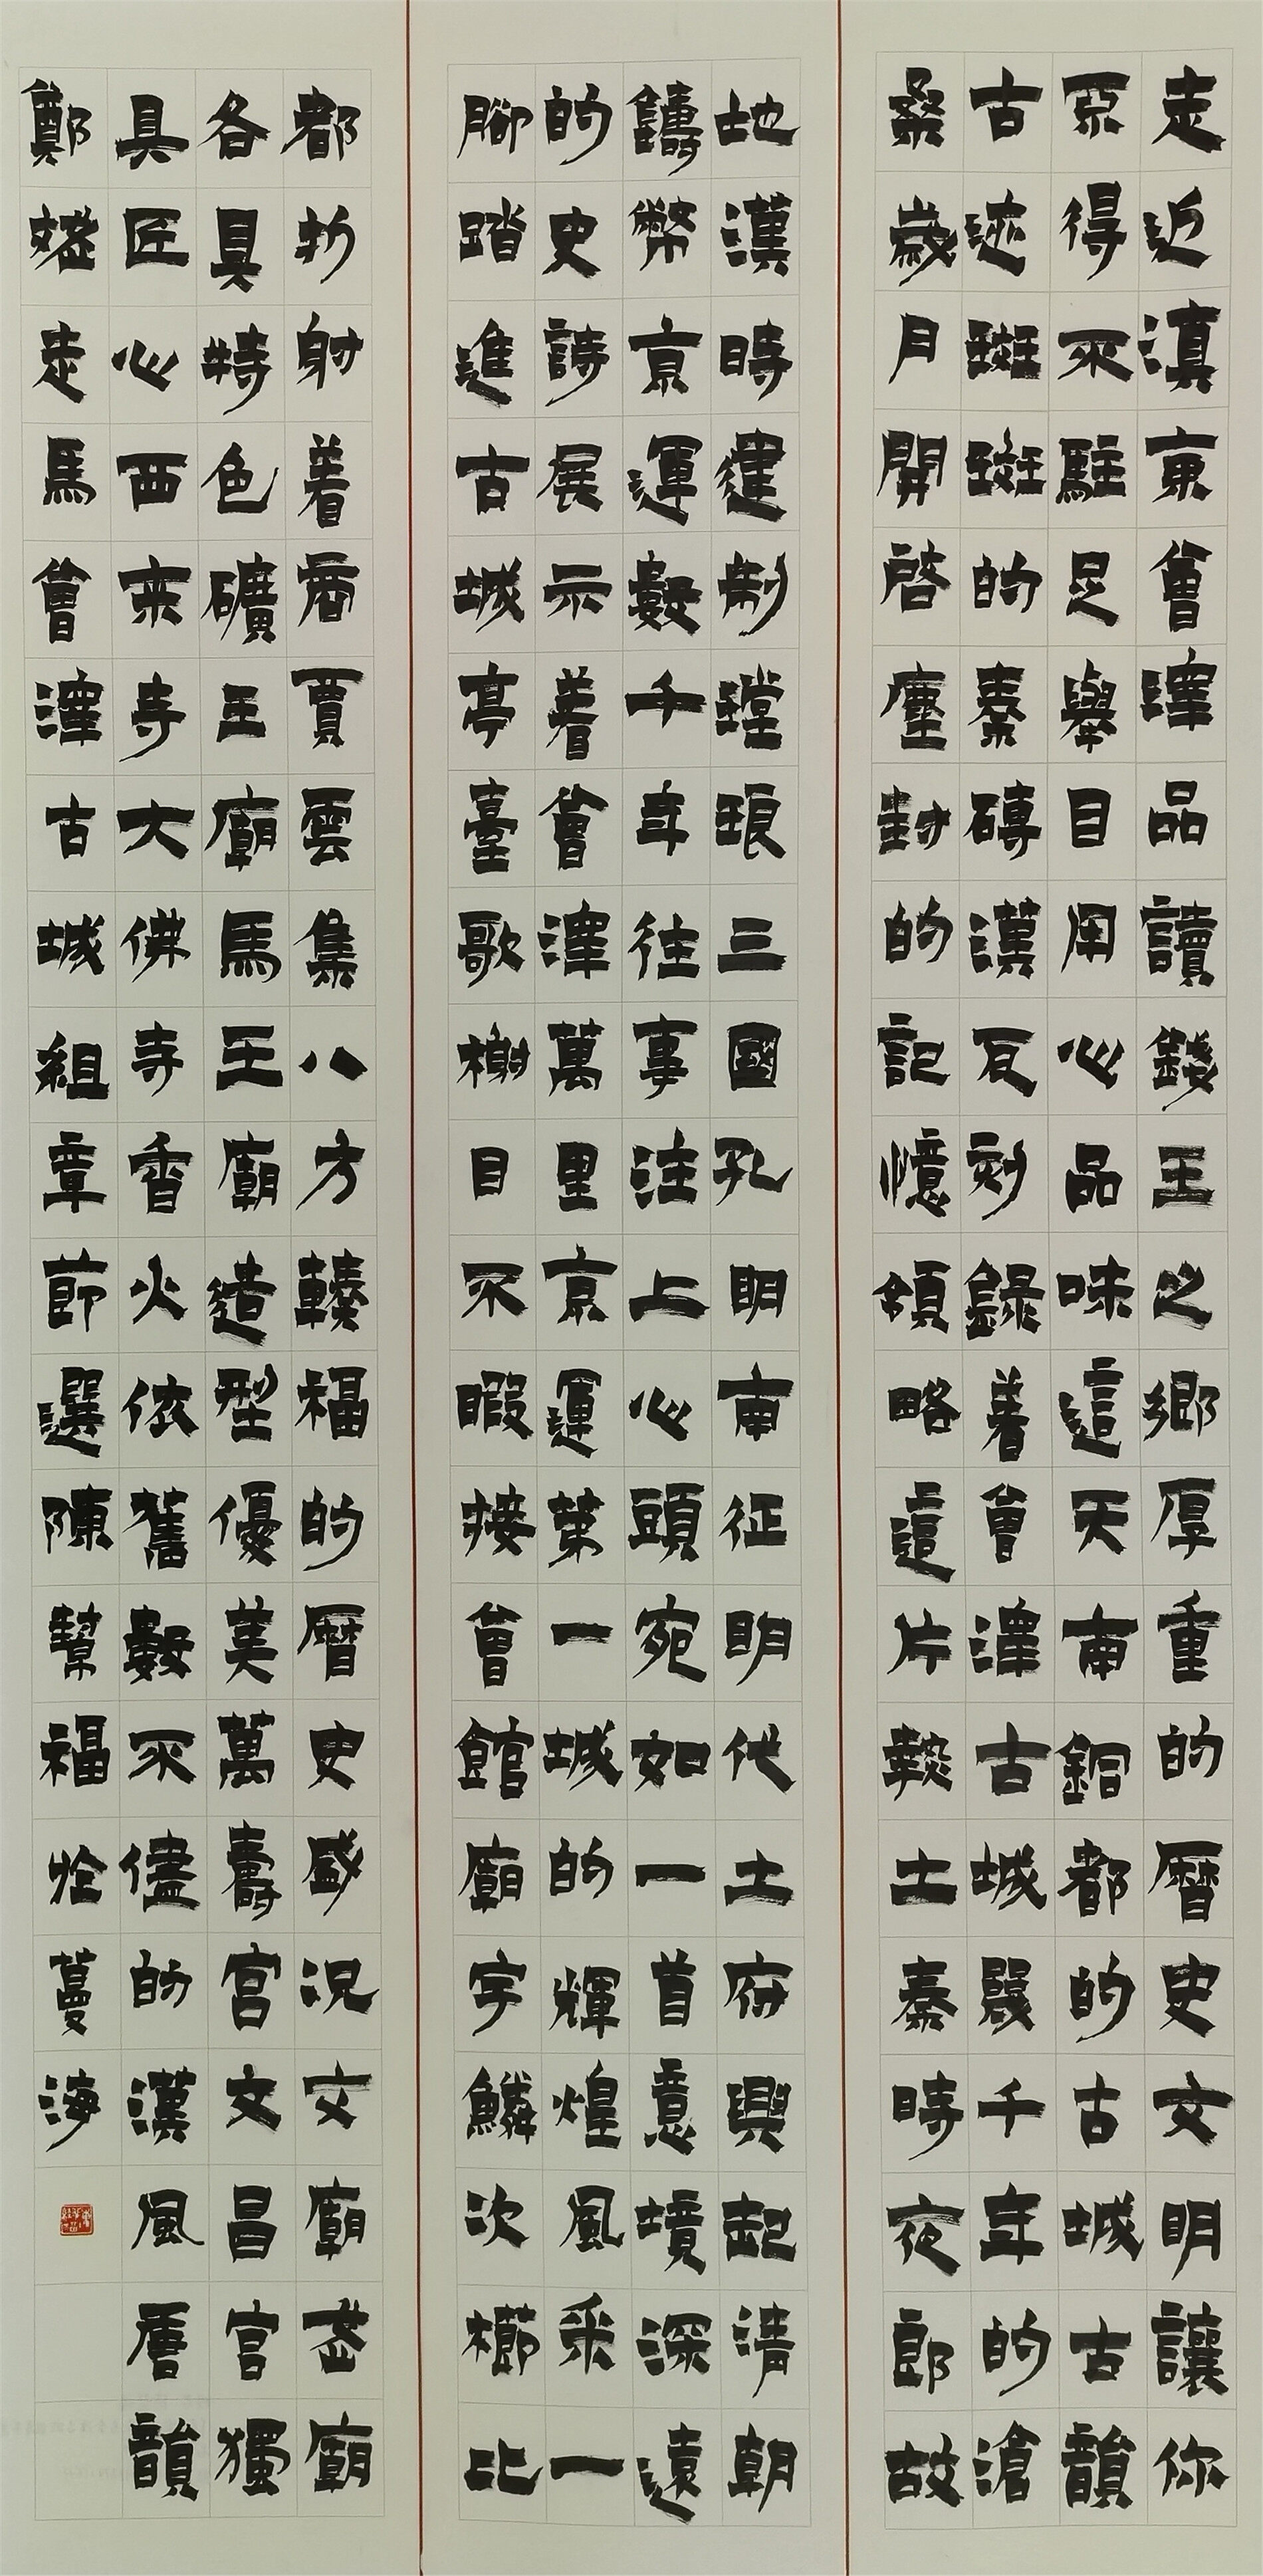 走近滇東會澤品讀錢王之鄉厚重的曆史文明讓你
不得不駐足舉目用心品味這天南銅都的古城古韻
古迹斑斑的秦磚漢瓦刻錄着會澤古城幾千年的滄
桑歲月開啓塵封的記憶領略這片熱土秦時夜郎故
地漢時建制螳琅三國孔明南征明代土府興起清朝
鑄幣京運數千年往事注上心頭宛如一首意境深遠
的史詩展示着會澤萬里京運第一城的輝煌風采一
腳踏進古城亭臺歌榭目不暇接會館廟宇鱗次櫛比
都折射着商賈雲集八方輳福的曆史盛況文廟武廟
各具特色礦王廟馬王廟造型優美萬壽宮文昌宮獨
具匠心西來寺大佛寺香火依舊數不盡的漢風唐韻
鄭斌走馬會澤古城組章節選陳幫福蔓海